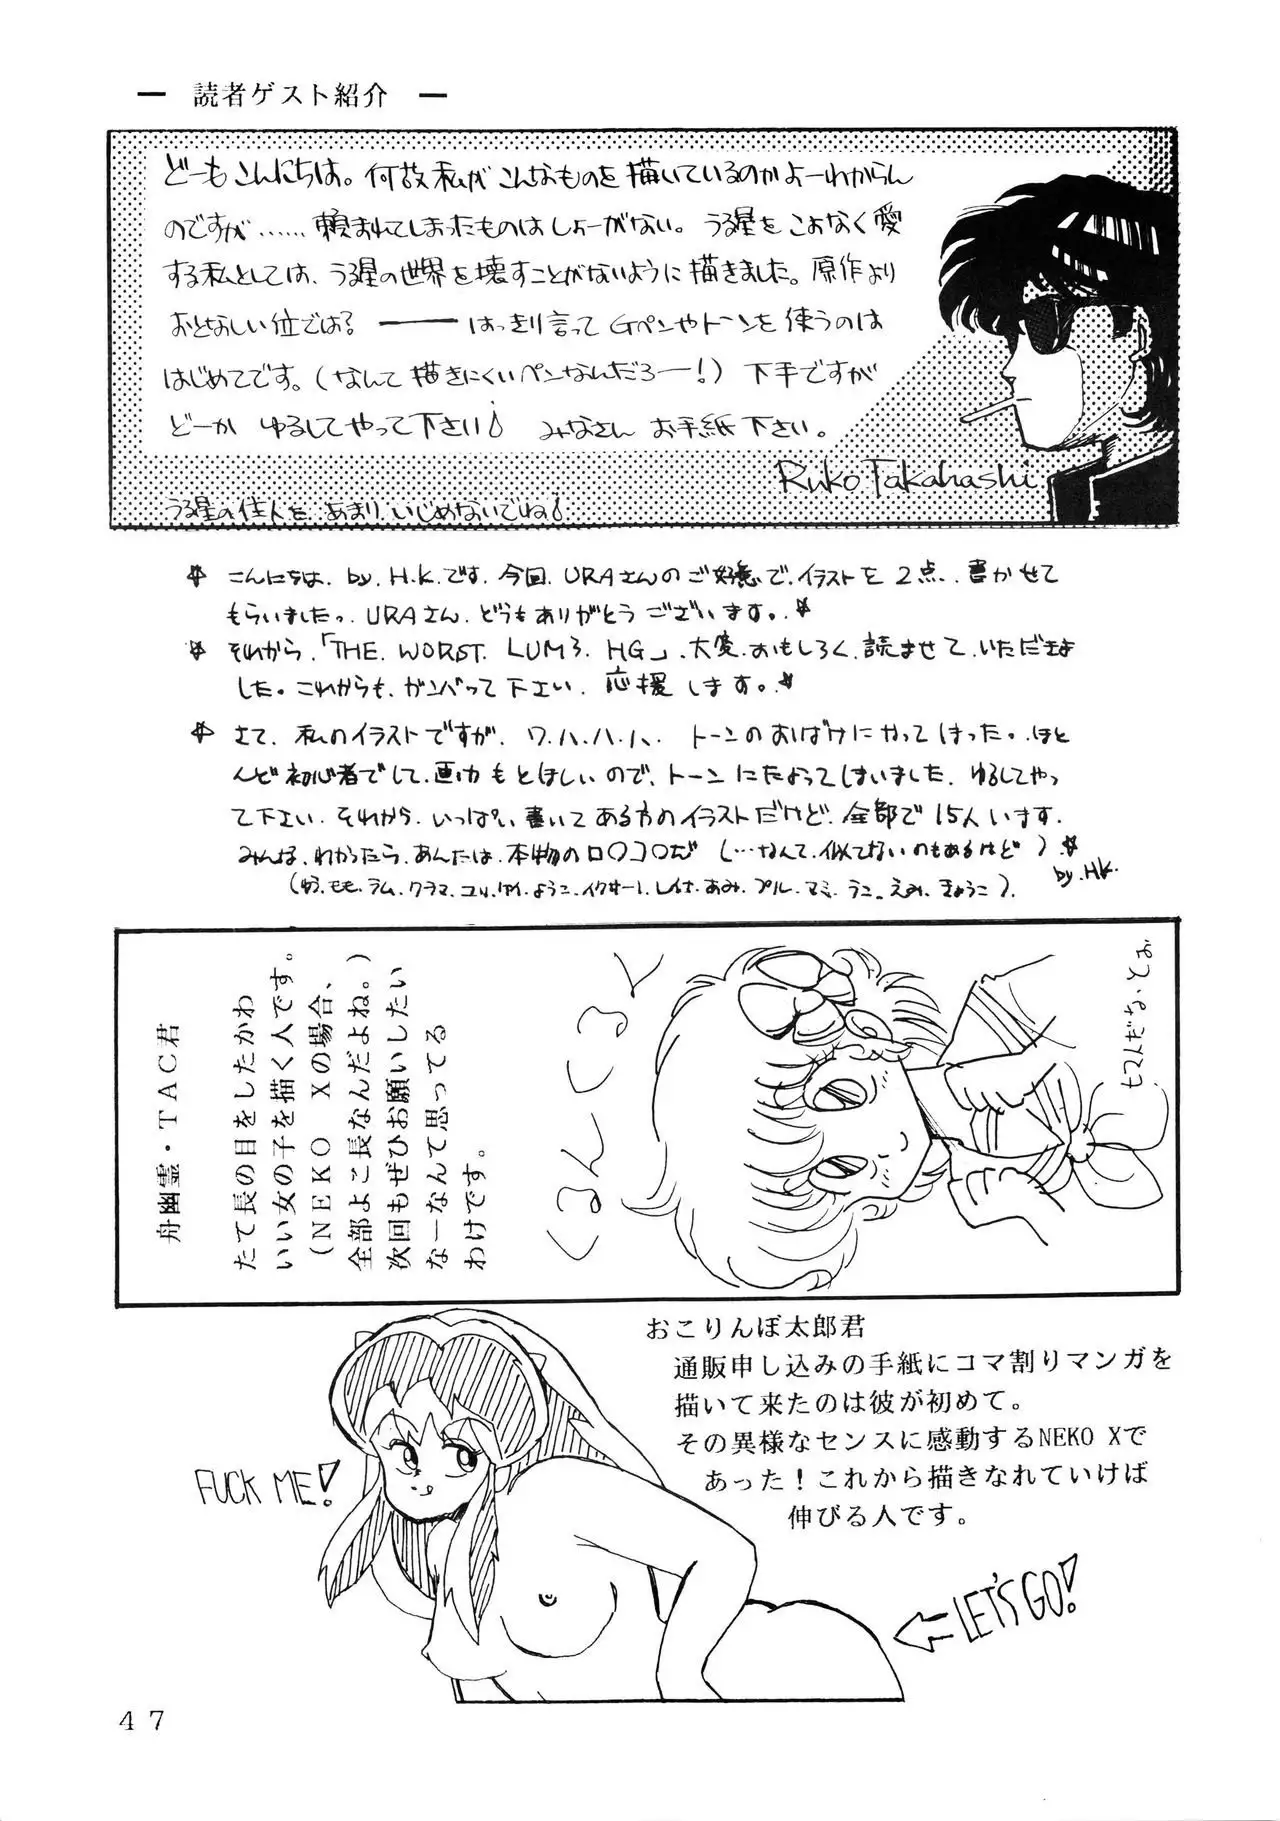 ― 読者ゲスト紹介 ―
どーもこんにちは。何故私がこんなものを描いているのかよーわからん
のですが……頼まれてしまったものはしょーがない。うる星をこよなく愛
する私としては、うる星の世界を壊すことがないように描きました。原作より
おとなしい位ではる ――はっきり言ってGペンやトーンを使うのは
はじめてです。(なんて描きにくいペンなんだろー!)下手ですが
どーか ゆるしてやって下さい! みなさん お手紙下さい。
Ruko Takahashi
うる星の住人を あまり いじめないでね!
☆ こんにちは. by. H.K.です. 今回. URAさんのご好意で. イラストを 2点. 書かせて
もらいましたっ. URAさん. どうもありがとう ございます。. ☆
☆ それから.「THE. WORST. LUM3. HG」. 大変. おもしろく. 読ませて. いただきま
した。これからも. ガンバって下さい. 応援 します。☆
☆ さて. 私のイラストですが. ワ.ハ.ハ.ハ. トーンのおばけにやってはった。. ほと
んど初心者でして. 画力もとぼしいので、トーンにたよってしまいました. ゆるしてやっ
て下さい. それから. いっぱい 書いてある方のイラストだけど. 全部で 15人います.
みんな. わかったら. あんたは. 本物のロ〇コ〇だ (…なんて. 似てないのもあるけど) ☆
by.HK.
(ゆう. モモ. ラム. クラマ. ユリ. けい. ようこ. イクサー1. レイナ. あみ. プル. マミ. うこ. えみ. きょうこ).
舟幽霊・TAC君
たて長の目をしたかわ
いい女の子を描く人です。
(NEKO Xの場合、
全部よこ長なんだよね。)
次回もぜひお願いしたい
なーなんて思ってる
わけです。
くるんくるン
ヒマんだな、とお
おこりんぼ太郎君
通販申し込みの手紙にコマ割りマンガを
描いて来たのは彼が初めて。
その異様なセンスに感動するNEKO Xで
あった!これから描きなれていけば
伸びる人です。
FUCK ME!
LET'S GO!
47